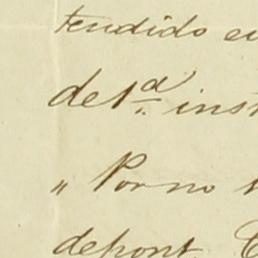 tendido e
de 1ª inst
„ Por no
depont